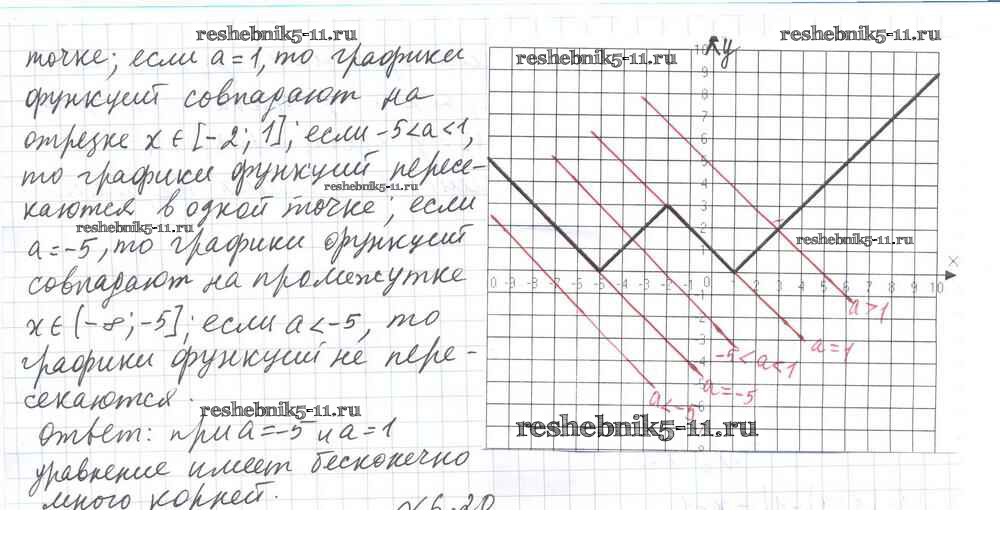 reshebnik5-11.ru
reshebnik5-11.ru
точке; если a=1, то графики
функций совпадают на
отрезке x∈[-2; 1]; если -5<a<1,
то графики функций пересе-
reshebnik5-11.ru
каются в одной точке; если
reshebnik5-11.ru
a=-5, то графики функций
совпадают на промежутке
x∈(-∞; -5]; если a<-5, то
графики функций не пере-
секаются.
reshebnik5-11.ru
Ответ: при a=-5 и a=1
уравнение имеет бесконечно
много корней.
№6.20
reshebnik5-11.ru
y
10
9
8
7
6
5
4
3
2
1
reshebnik5-11.ru
x
0 -9 -8 -7 -6 -5 -4 -3 -2 -1 0 1 2 3 4 5 6 7 8 9 10
a>1
a=1
-5<a<1
a=-5
a<-5
reshebnik5-11.ru